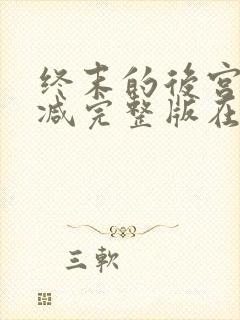 终末的後宫
减完整版在
三軟